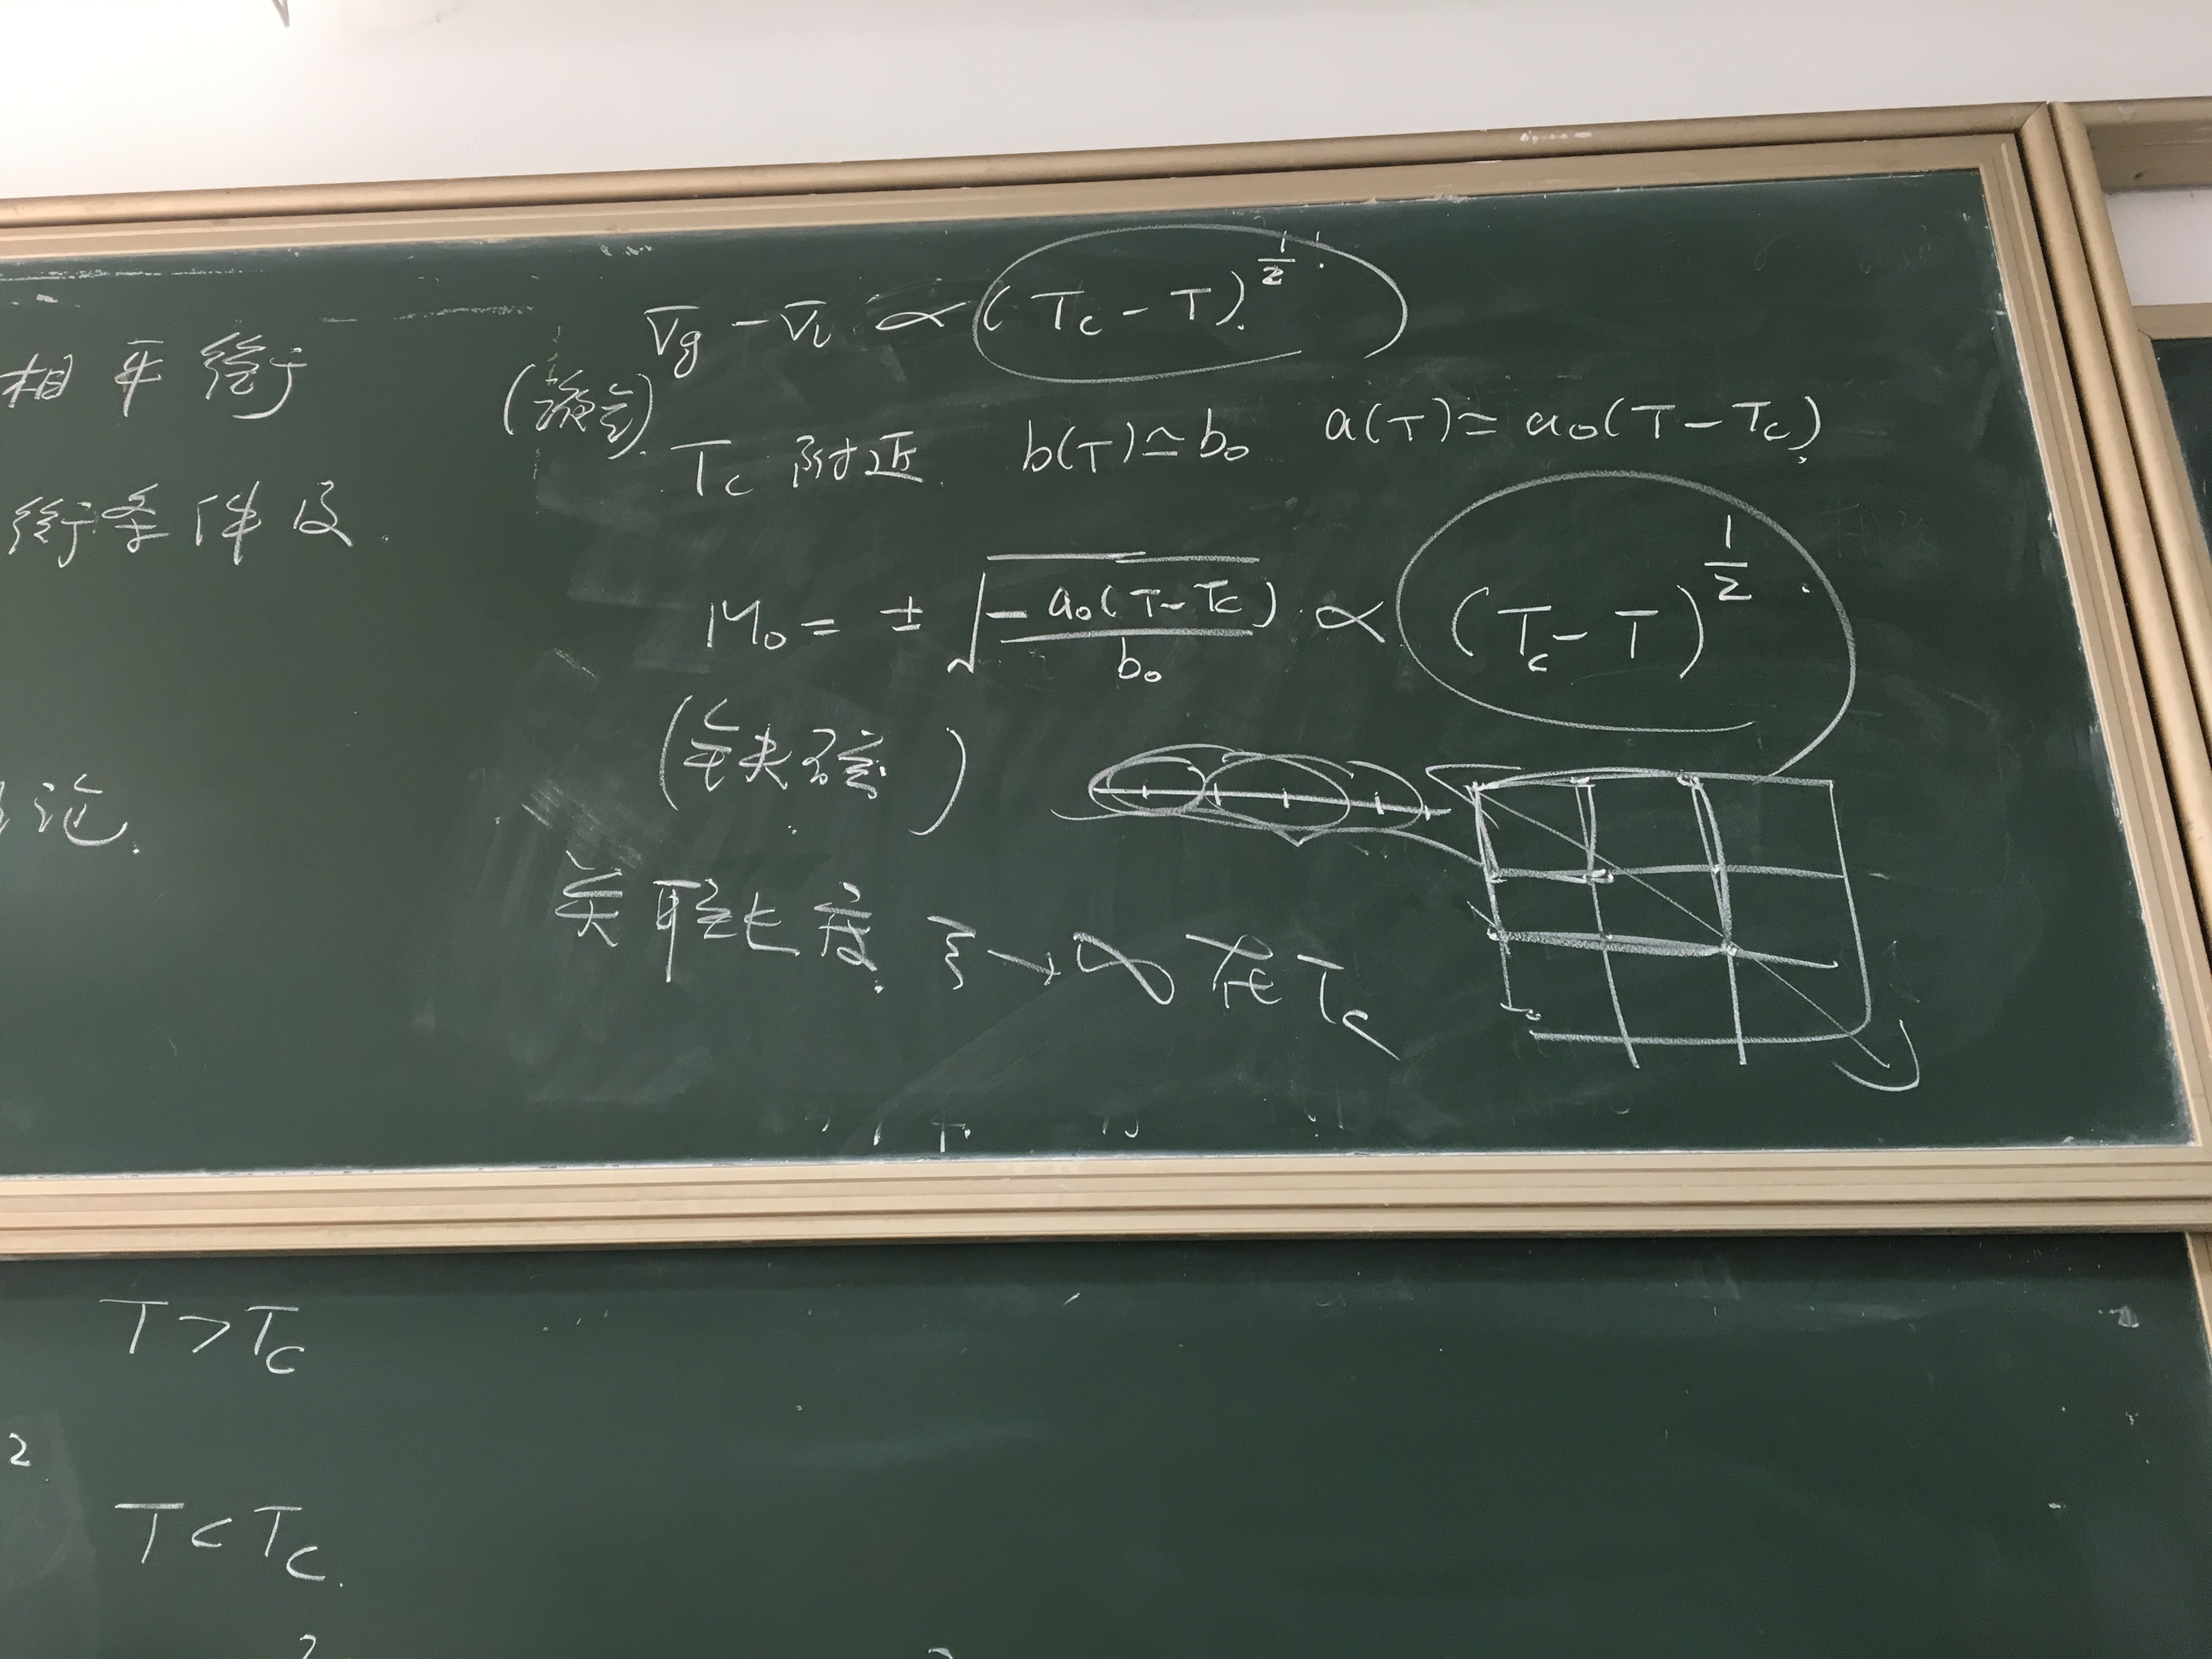 相平衡
衡条件及
论.
V̄g - V̄l ∝ (Tc - T)^{1/2}
Tc 附近 b(T) ≃ b₀ a(T) ≃ a₀(T - Tc)
M₀ = ± √(-a₀(T - Tc) / b₀) ∝ (Tc - T)^{1/2}
(铁磁)
关联长度 ξ → ∞ 在 Tc
T > Tc
2
T < Tc